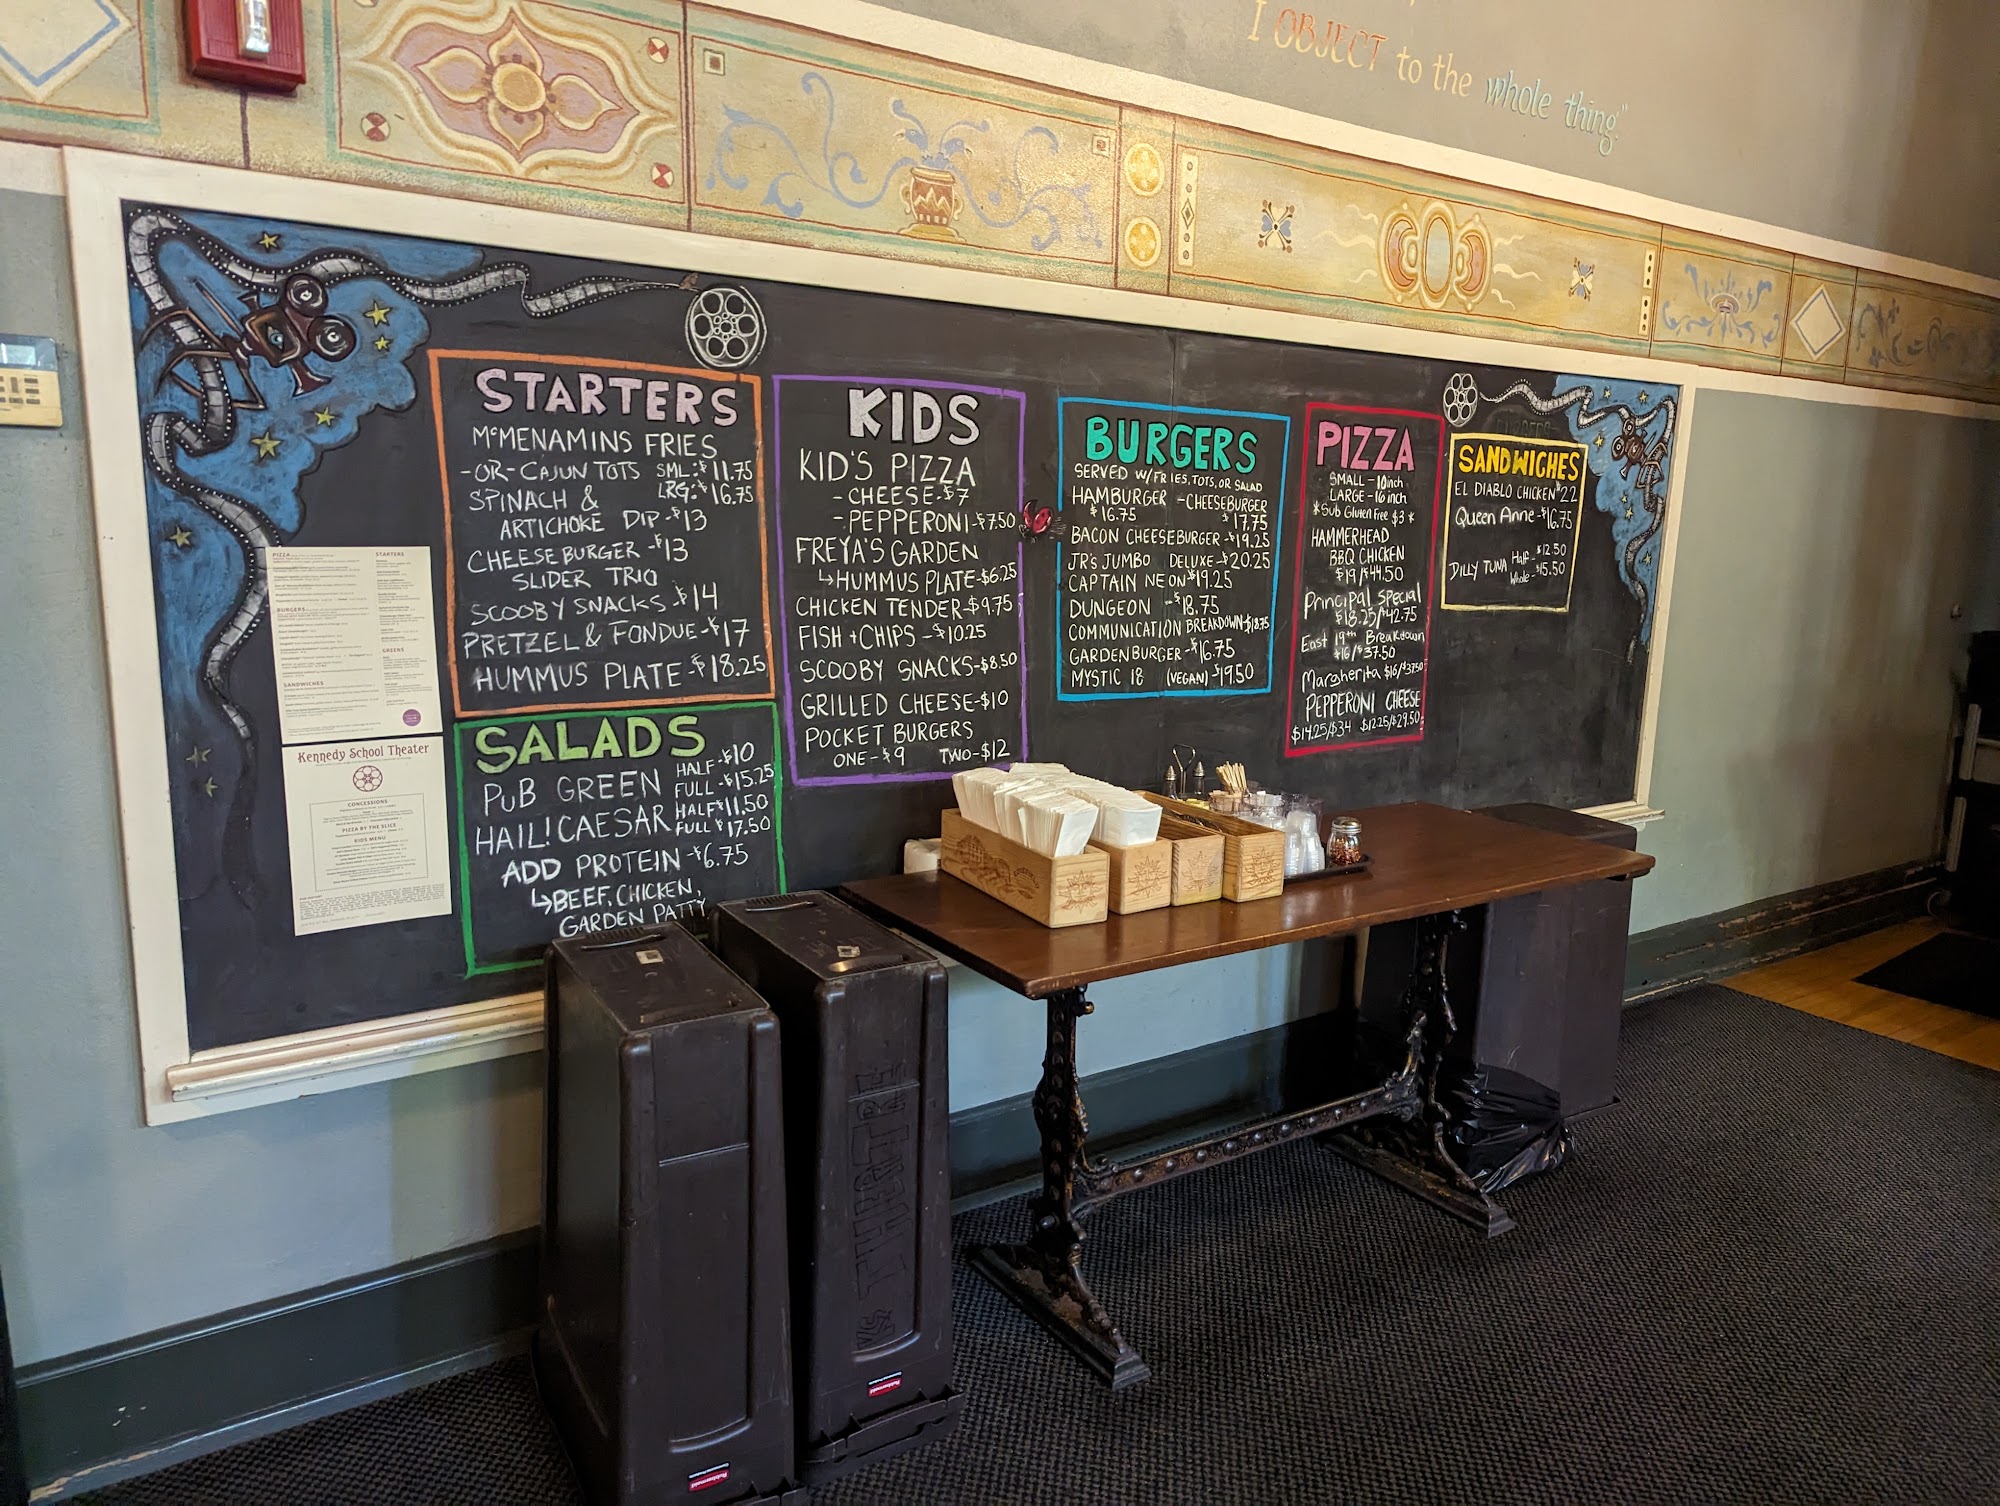 I OBJECT to the whole thing"
STARTERS
McMENAMINS FRIES
-OR- CAJUN TOTS SML: $11.75
LRG: $16.75
SPINACH &
ARTICHOKE DIP - $13
CHEESEBURGER - $13
SLIDER TRIO
SCOOBY SNACKS - $14
PRETZEL & FONDUE - $17
HUMMUS PLATE - $18.25
SALADS
PUB GREEN HALF - $10
FULL - $15.25
HAIL! CAESAR HALF $11.50
FULL $17.50
ADD PROTEIN - $6.75
↳ BEEF, CHICKEN,
GARDEN PATTY
KIDS
KID'S PIZZA
- CHEESE - $7
- PEPPERONI - $7.50
FREYA'S GARDEN
↳ HUMMUS PLATE - $6.25
CHICKEN TENDER - $9.75
FISH + CHIPS - $10.25
SCOOBY SNACKS - $8.50
GRILLED CHEESE - $10
POCKET BURGERS
ONE - $9 TWO - $12
BURGERS
SERVED W/FRIES, TOTS, OR SALAD
HAMBURGER - CHEESEBURGER
$16.75 $17.75
BACON CHEESEBURGER - $19.25
JR'S JUMBO DELUXE - $20.25
CAPTAIN NEON $19.25
DUNGEON - $18.75
COMMUNICATION BREAKDOWN - $18.75
GARDENBURGER - $16.75
MYSTIC 18 (VEGAN) - $19.50
PIZZA
SMALL - 10 inch
LARGE - 16 inch
* Sub Gluten Free $3 *
HAMMERHEAD
BBQ CHICKEN
$19/$44.50
Principal Special
$18.25/$42.75
East 19th Breakdown
$16/$37.50
Margherita $16/$37.50
PEPPERONI CHEESE
$14.25/$34 $12.25/$29.50
SANDWICHES
EL DIABLO CHICKEN $22
Queen Anne - $16.75
DILLY TUNA Half - $12.50
Whole - $15.50
PIZZA
STARTERS
BURGERS
GREENS
SANDWICHES
Kennedy School Theater
CONCESSIONS
PIZZA BY THE SLICE
KIDS MENU
KS THEATRE
Rubbermaid
Rubbermaid